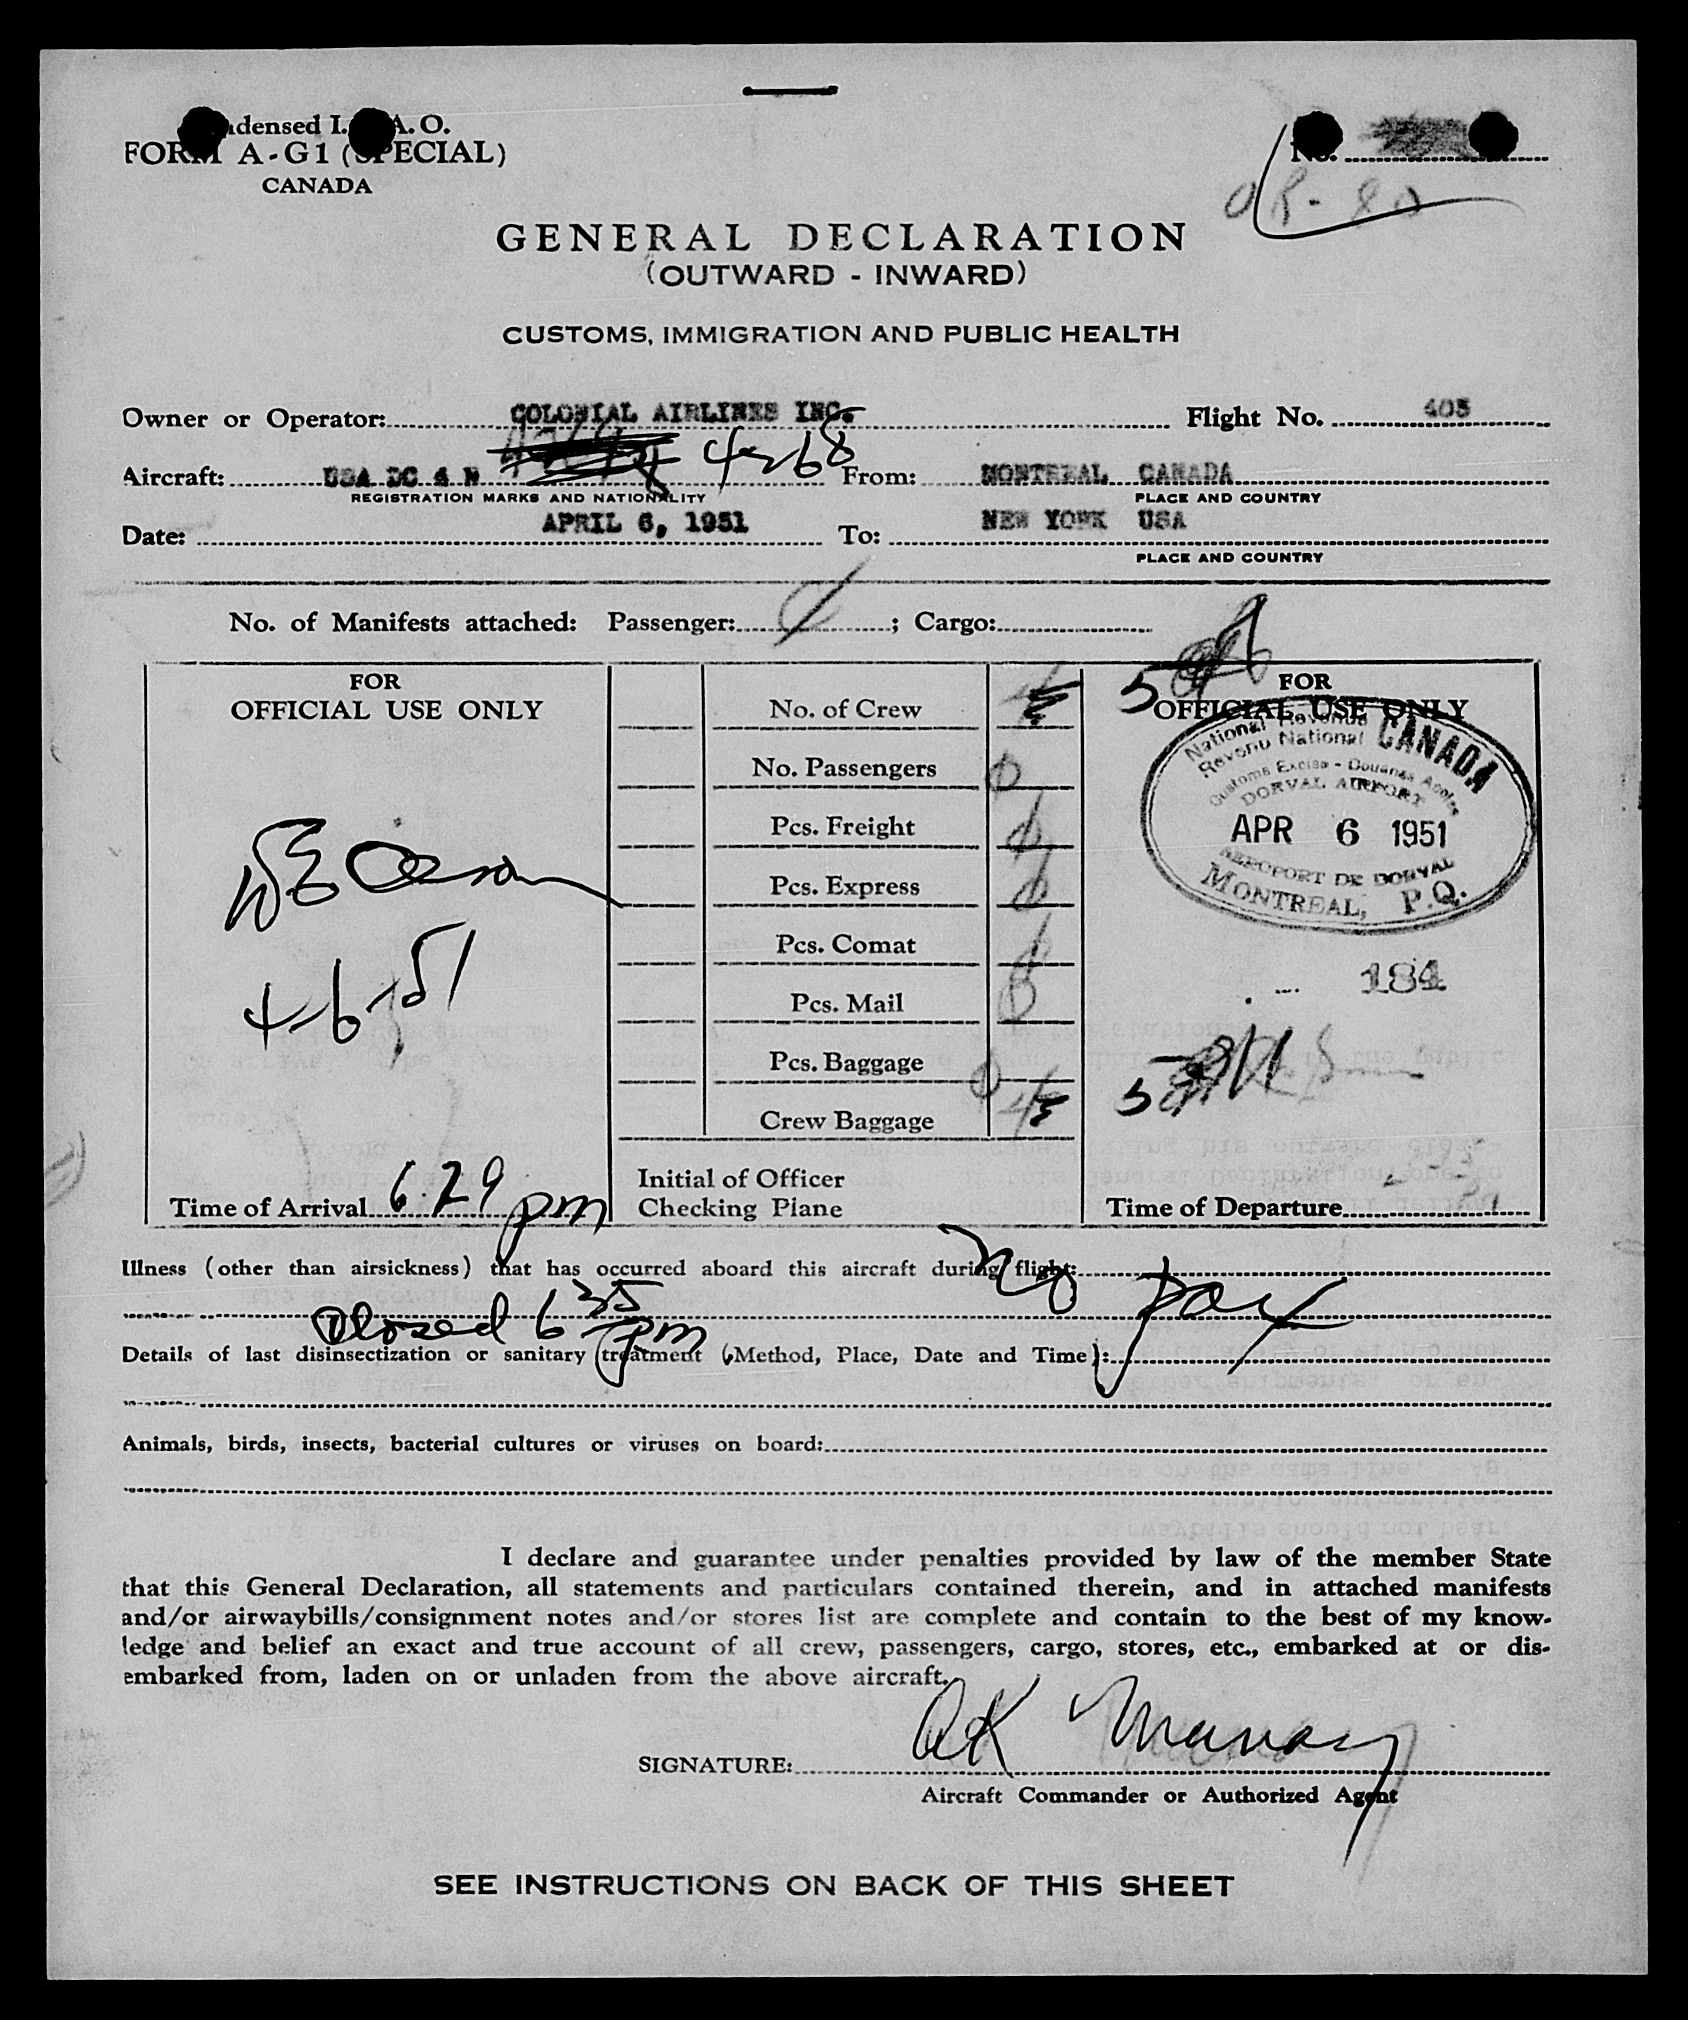 FORM A-G1 (SPECIAL)
CANADA
No.
GENERAL DECLARATION
(OUTWARD - INWARD)
CUSTOMS, IMMIGRATION AND PUBLIC HEALTH
Owner or Operator: COLONIAL AIRLINES INC. Flight No. 405
Aircraft: USA DC 4 N 4268 From: MONTREAL CANADA
REGISTRATION MARKS AND NATIONALITY PLACE AND COUNTRY
Date: APRIL 6, 1951 To: NEW YORK USA
PLACE AND COUNTRY
No. of Manifests attached: Passenger: ; Cargo:
FOR
OFFICIAL USE ONLY
4-6-51
Time of Arrival 6.29 pm
No. of Crew
No. Passengers 0
Pcs. Freight
Pcs. Express
Pcs. Comat
Pcs. Mail
Pcs. Baggage
Crew Baggage
Initial of Officer
Checking Plane
FOR
OFFICIAL USE ONLY
National Revenue CANADA
Revenu National
Customs Excise - Douanes Accise
DORVAL AIRPORT
APR 6 1951
AEROPORT DE DORVAL
MONTREAL, P.Q.
184
Time of Departure
Illness (other than airsickness) that has occurred aboard this aircraft during flight: No pax
Closed 6 35 pm
Details of last disinsectization or sanitary treatment (Method, Place, Date and Time):
Animals, birds, insects, bacterial cultures or viruses on board:
I declare and guarantee under penalties provided by law of the member State
that this General Declaration, all statements and particulars contained therein, and in attached manifests
and/or airwaybills/consignment notes and/or stores list are complete and contain to the best of my know-
ledge and belief an exact and true account of all crew, passengers, cargo, stores, etc., embarked at or dis-
embarked from, laden on or unladen from the above aircraft.
SIGNATURE:
Aircraft Commander or Authorized Agent
SEE INSTRUCTIONS ON BACK OF THIS SHEET